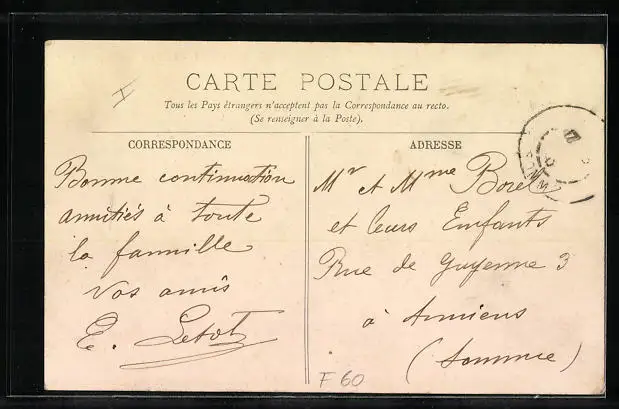 CARTE POSTALE
Tous les Pays étrangers n'acceptent pas la Correspondance au recto.
(Se renseigner à la Poste).
CORRESPONDANCE
Bonne continuation
amitiés à toute
la famille
vos amis
E. Letot
ADRESSE
Mr et Mme Borel
et leurs Enfants
Rue de Guyenne 3
à Amiens
(Somme)
F 60